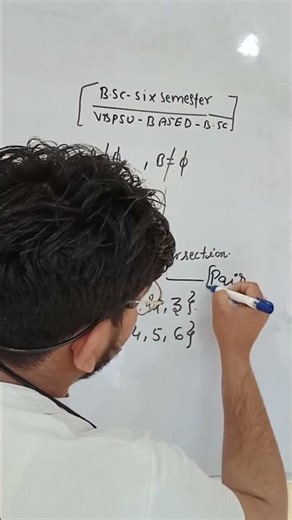 [B.Sc-Six Semester
VBPSU-BASED-B.Sc]
≠ ϕ , B ≠ ϕ
rsection.
[Pair
, 3}.
4, 5, 6}